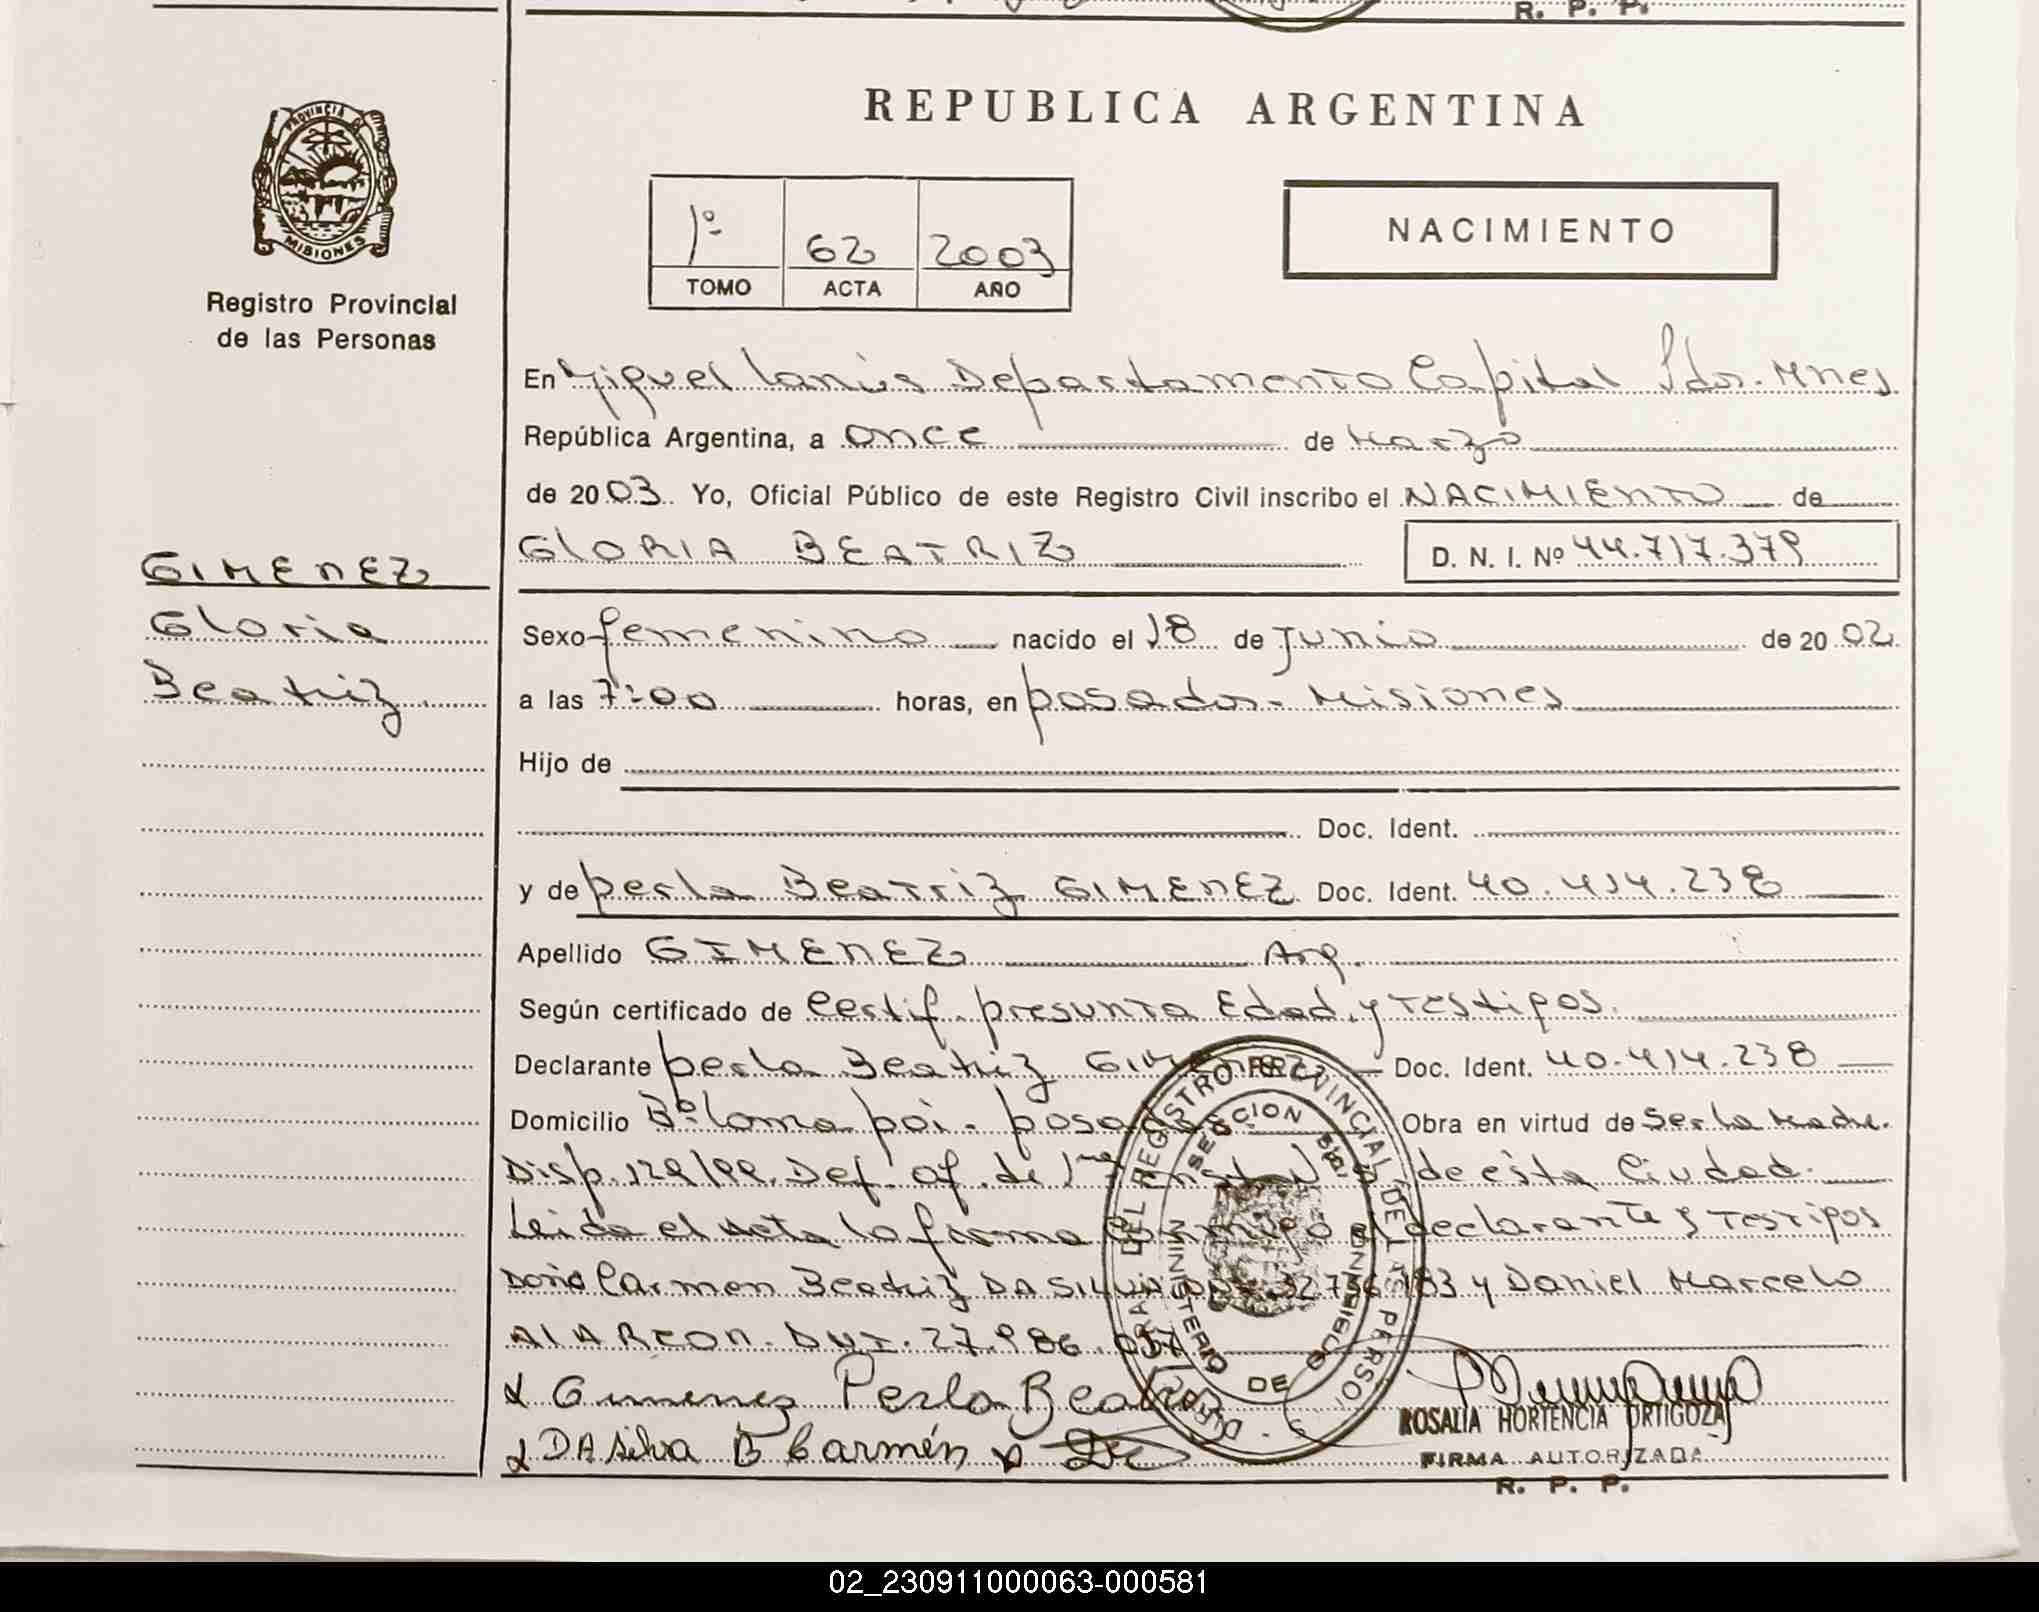 R. P. P.
PROVINCIA DE
MISIONES
Registro Provincial
de las Personas
REPUBLICA ARGENTINA
1º 62 2003
TOMO ACTA AÑO
NACIMIENTO
En Miguel Lanús Departamento Capital Pdas. Mnes
República Argentina, a once de Marzo
de 2003. Yo, Oficial Público de este Registro Civil inscribo el NACIMIENTO de
GLORIA BEATRIZ D. N. I. Nº 44.717.379
GIMENEZ
Gloria
Beatriz
Sexo femenino nacido el 18 de Junio de 2002
a las 7:00 horas, en posadas - Misiones
Hijo de
Doc. Ident.
y de perla Beatriz GIMENEZ Doc. Ident. 40.414.238
Apellido GIMENEZ Arg.
Según certificado de Certif. presunta Edad y testigos.
Declarante perla Beatriz Gimenez Doc. Ident. 40.414.238
Domicilio Bº loma poi - posadas Obra en virtud de ser la Madre.
Disp. 129/99. Def. of. de 1ra Inst. de esta Ciudad.
Leida el acta la firma conmigo el declarante y testigos
Doña Carmen Beatriz DA SILVA 32.736.183 y Daniel Marcelo
ALARCON. DNI. 27.986.057
Gimenez Perla Beatriz
DA silva B Carmén
DEL REGISTRO PROVINCIAL DE LAS PERSO
SECCION
MINISTERIO DE GOBIERNO
ROSALIA HORTENCIA ORTIGOZA
FIRMA AUTORIZADA
R. P. P.
02_230911000063-000581